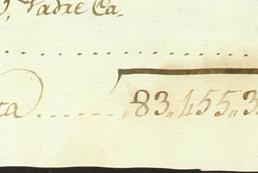 Padre Ca.
ta) ...... 83,,455,,3